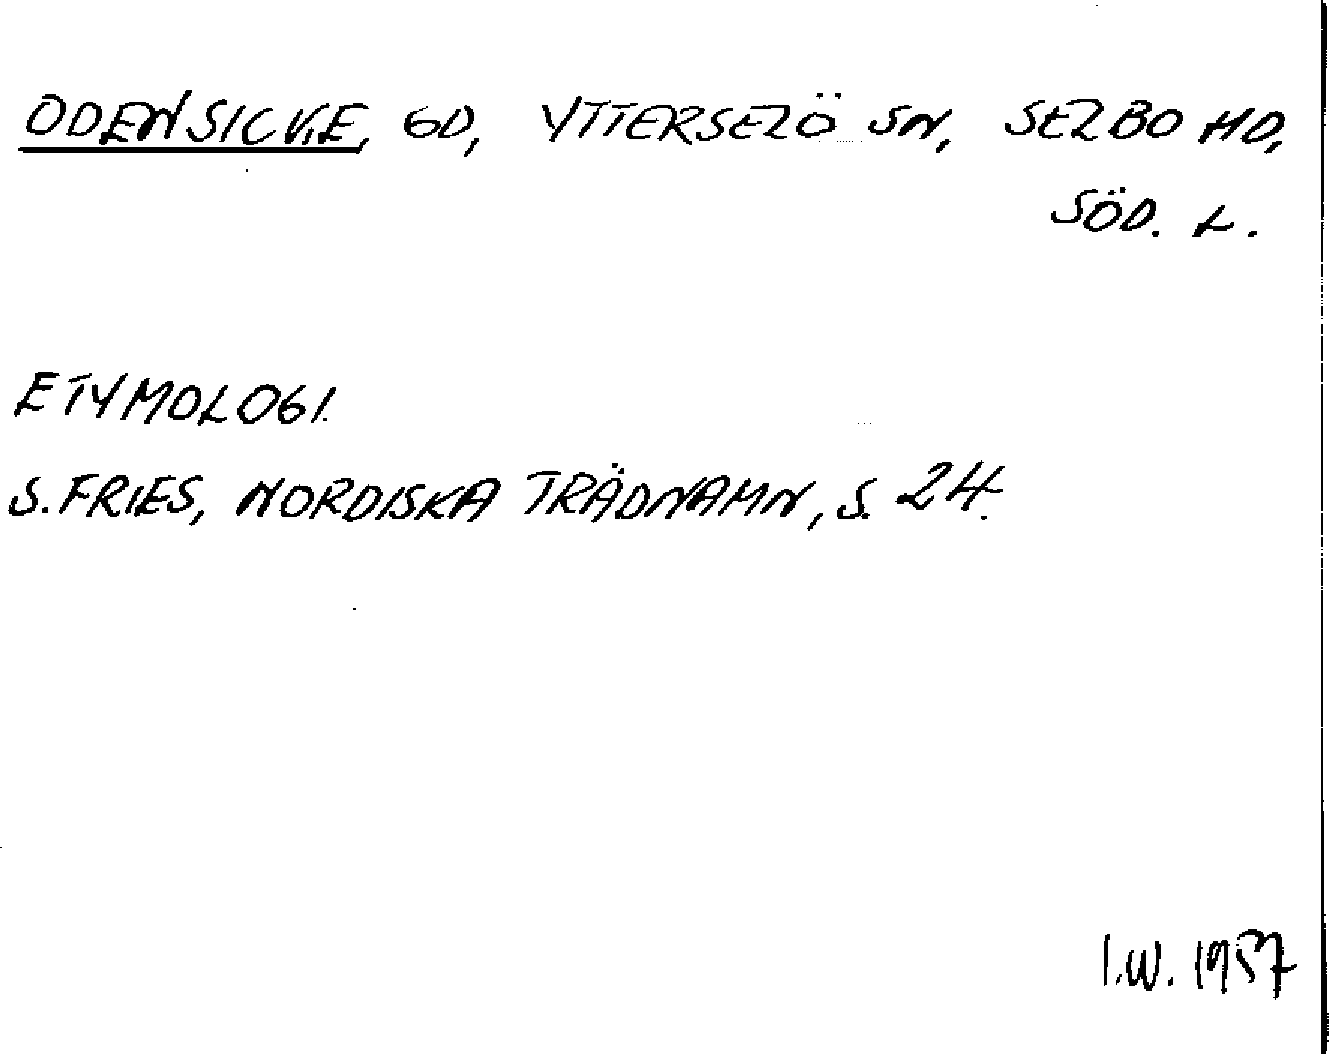 ODENSICKE, GD, YTTERSELÖ SN, SELBO HD,
SÖD. L.
ETYMOLOGI.
S. FRIES, NORDISKA TRÄDNAMN, S. 24.
I.W. 1957